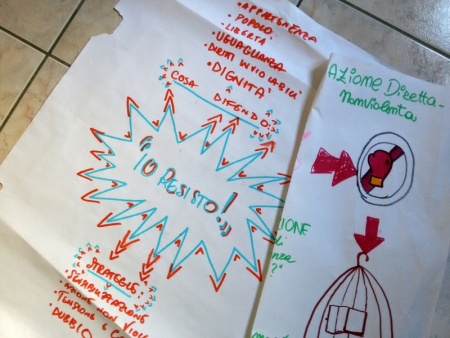 • APPARTENENZA
• POPOLO
• LIBERTÀ
• UGUAGLIANZA
DIRITTI INVIOLABILI
• DIGNITÀ
COSA DIFENDO:
"IO RESISTO!"
STRATEGIE
• AZIONE NON VIOL
• TENSIONE E C
• DUBBIO
AZIONE DIRETTA-
Nonviolenta
ZIONE